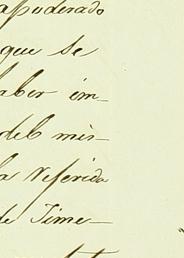 apoderado
que se
aber im-
del mis-
la referida
de Time-